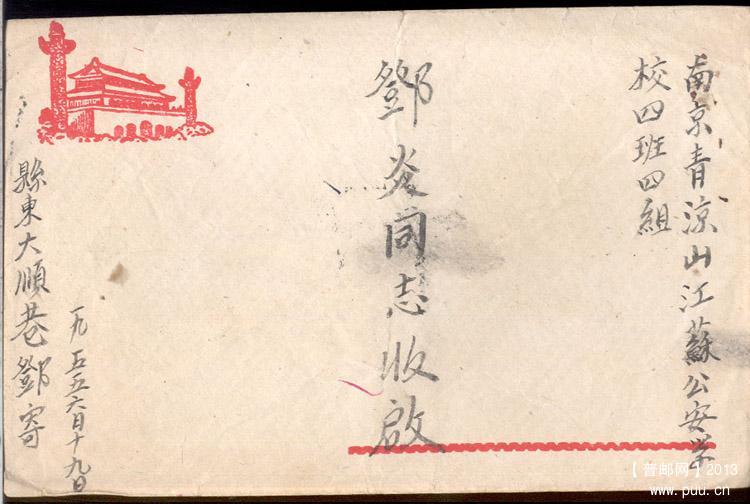 南京青涼山江蘇公安学
校四班四組
鄧炎同志收啟
縣東大順巷鄧寄
一九五五六月十九日
【普邮网】2013
www.puu.cn